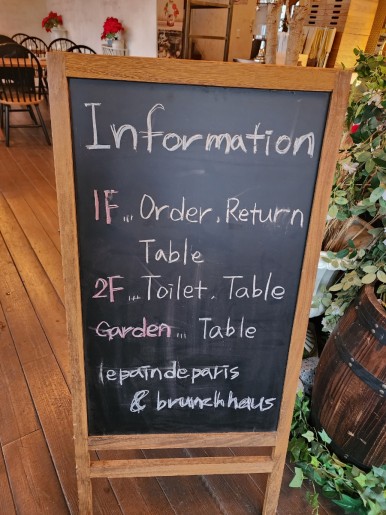 Information
1F... Order, Return
Table
2F... Toilet, Table
Garden... Table
lepaindeparis
& brunchhaus